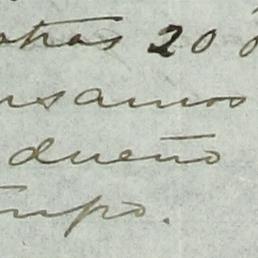 otras 20 ó
nsamos
dueño
empo.